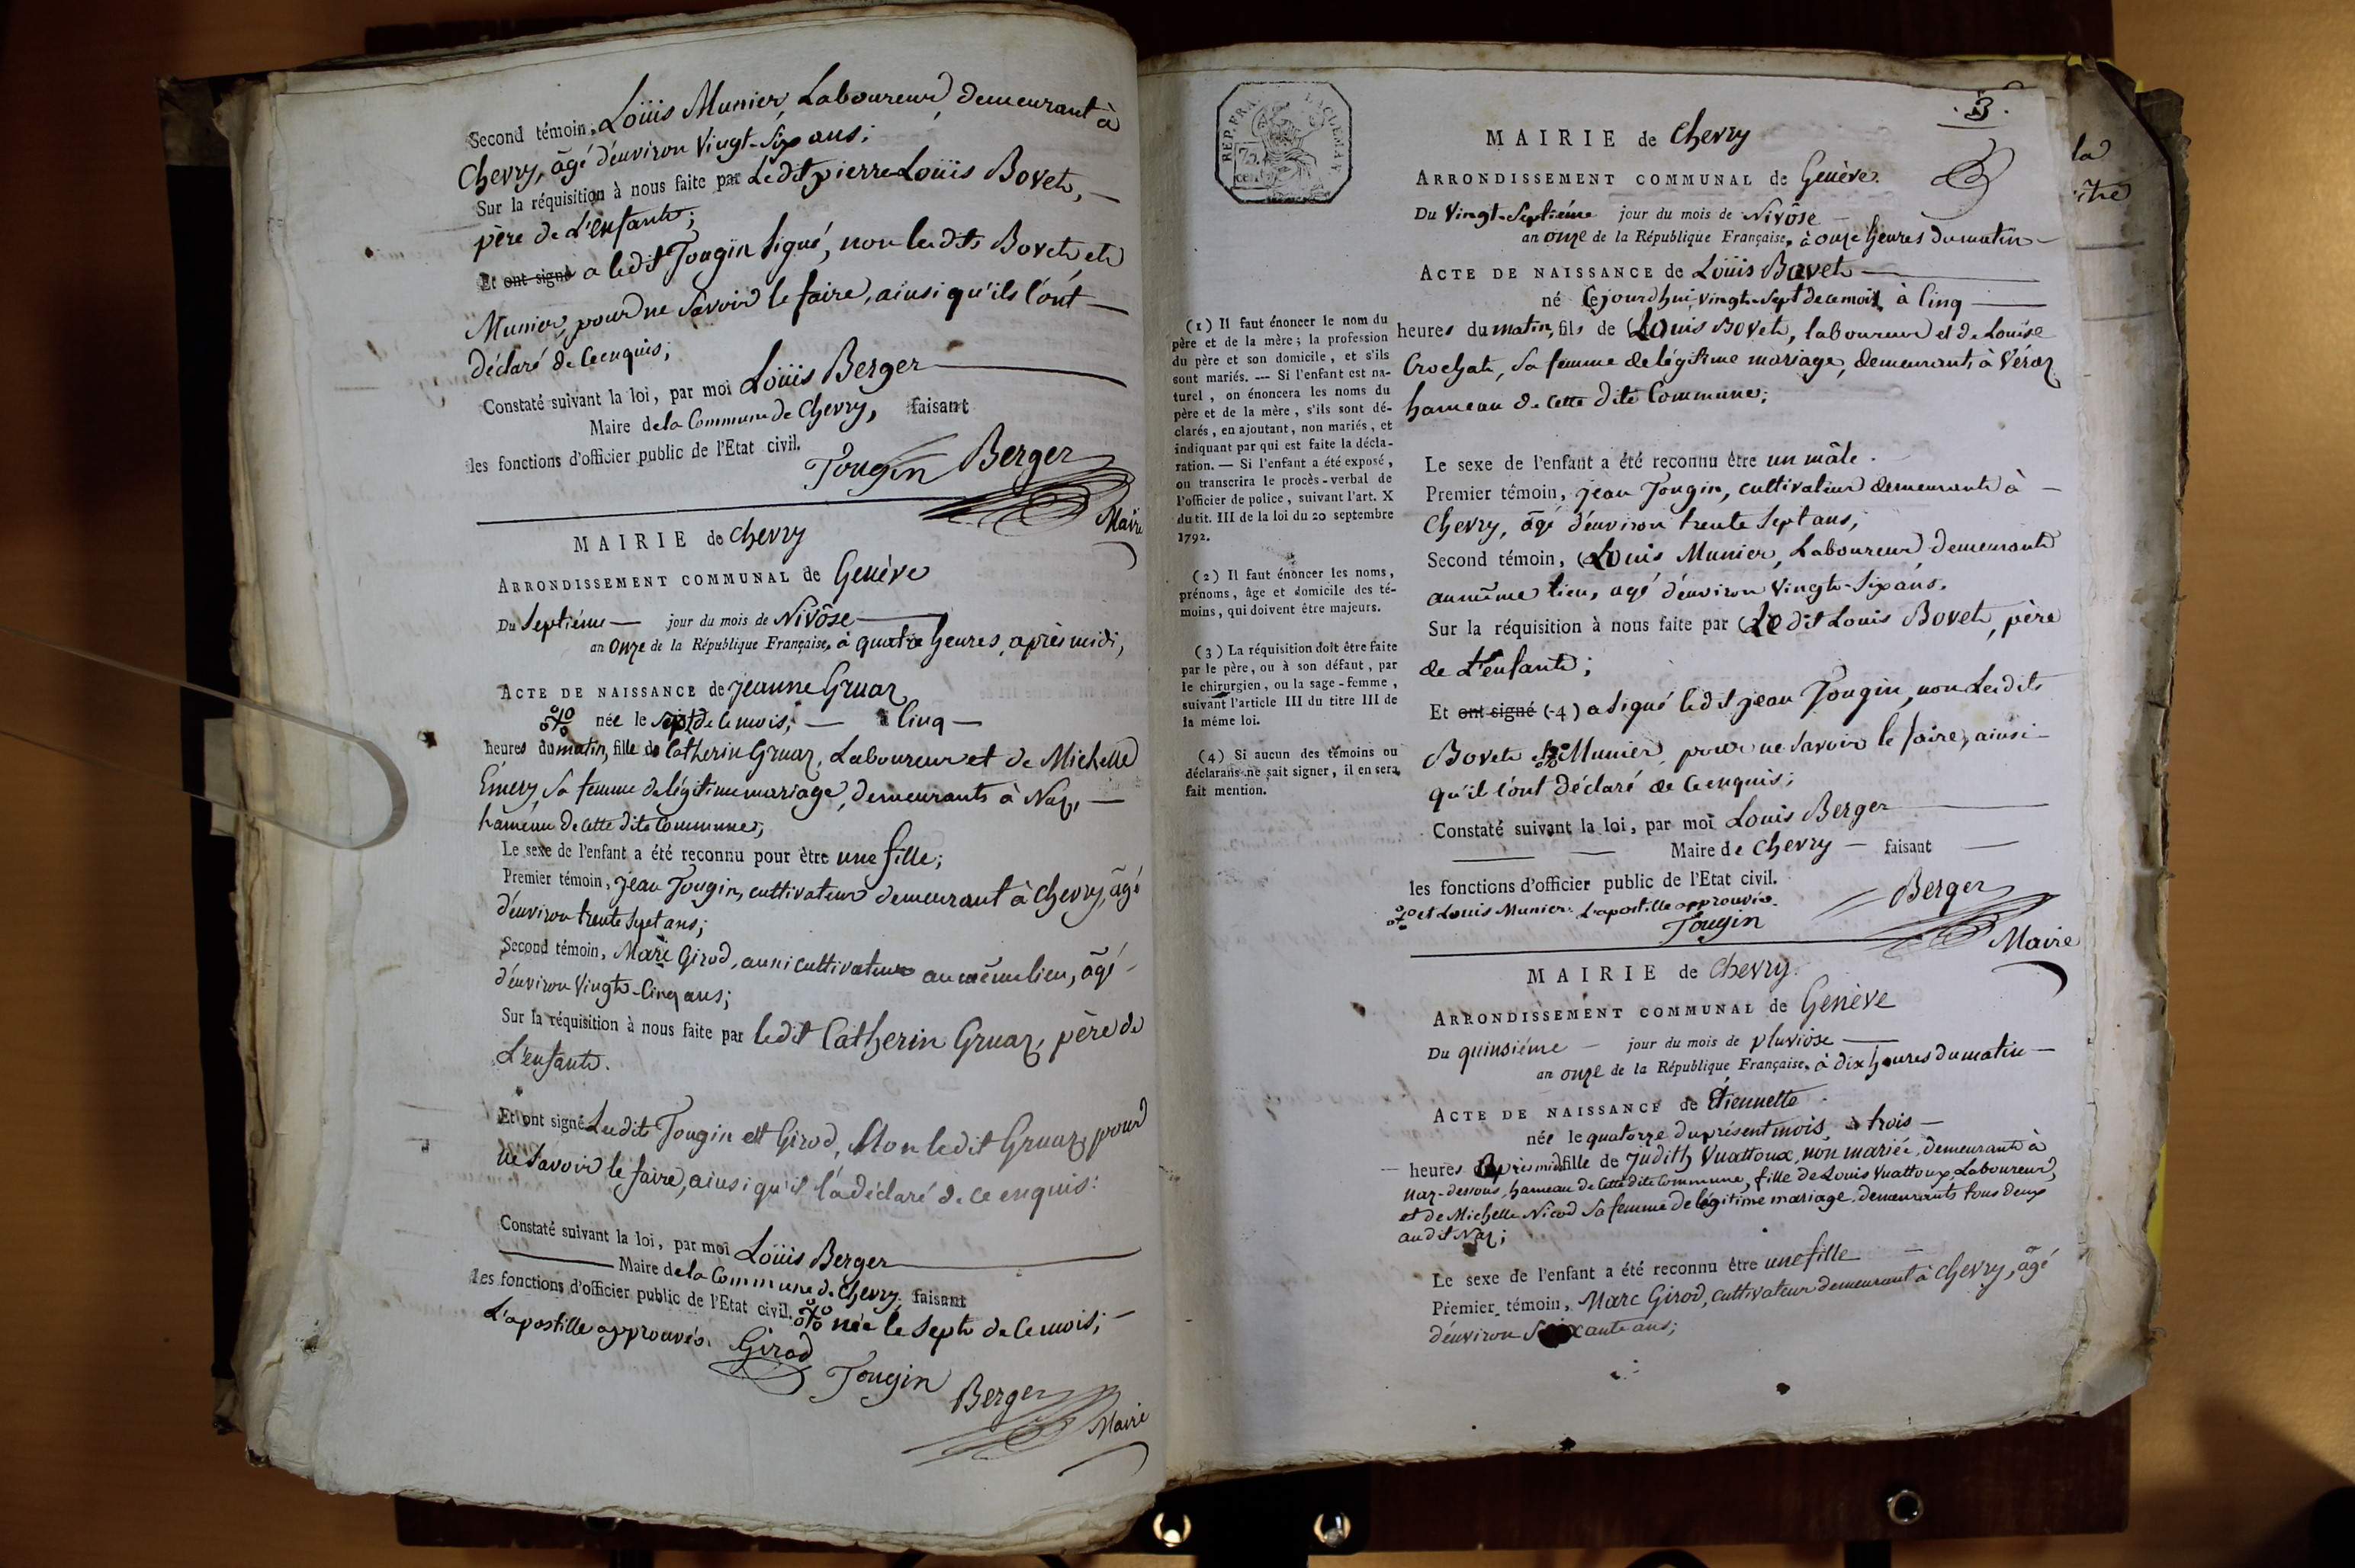 Second témoin, Loüis Munier, Laboureur, demeurant à
Chevry, âgé d'environ Vingt-Six ans;
Sur la réquisition à nous faite par Ledit pierre Loüis Bovet, —
père de L'enfant;
Et ont signé a ledit Tougin signé, non lesdits Bovet et
Munier, pour ne Savoir le faire, ainsi qu'ils l'ont —
déclaré de ce enquis;
Constaté suivant la loi, par moi Loüis Berger
Maire de la Commune de Chevry, faisant
les fonctions d'officier public de l'Etat civil.
Tougin Berger
Maire
MAIRIE de Chevry
ARRONDISSEMENT COMMUNAL de Genève
Du Septiéme — jour du mois de Nivôse
an Onze de la République Française, à quatre heures, après midi,
ACTE DE NAISSANCE de jeanne Gruaz
née le sept de ce mois; — à Cinq —
heures du matin, fille de Catherin Gruaz, Laboureur et de Michelle
Emery, Sa femme de légitime mariage, demeurants à Naz, —
hameau de cette dite Commune;
Le sexe de l'enfant a été reconnu pour être une fille;
Premier témoin, jean Tougin, cultivateur demeurant à Chevry, âgé
d'environ trente Sept ans;
Second témoin, Marc Girod, aussi cultivateur au même lieu, âgé -
d'environ Vingt-Cinq ans;
Sur la réquisition à nous faite par ledit Catherin Gruaz, père de
L'enfant.
Et ont signé Lesdits Tougin et Girod, Non ledit Gruaz, pour
ne Savoir le faire, ainsi qu'il l'a déclaré de ce enquis:
Constaté suivant la loi, par moi Loüis Berger
Maire de la Commune de Chevry, faisant
les fonctions d'officier public de l'Etat civil. née le Sept de Ce mois; —
L'apostille approuvée. Girod
Tougin Berger
Maire
REP. FRA
75
cent
3.
MAIRIE de Chevry
ARRONDISSEMENT COMMUNAL de Genève.
Du Vingt-Septiéme jour du mois de Nivôse —
an onze de la République Française, à onze heures du matin —
ACTE DE NAISSANCE de Loüis Bovet
né Cejourd'hui vingt-Sept de ce mois à Cinq
heures du matin, fils de Louis Bovet, laboureur et de Louise
Crochat, Sa femme de légitime mariage, demeurants à Véraz
hameau de cette dite Commune;
Le sexe de l'enfant a été reconnu être un mâle.
Premier témoin, jean Tougin, cultivateur demeurant à —
Chevry, âgé d'environ trente Sept ans;
Second témoin, Louis Munier, Laboureur demeurant
au même lieu, agé d'environ Vingt-Six ans.
Sur la réquisition à nous faite par Le dit Louis Bovet, père
de L'enfant;
Et ont signé (4) a signé ledit jean Tougin, non Lesdits
Bovet et Munier, pour ne Savoir le faire, ainsi —
qu'il l'ont déclaré de Ce enquis;
Constaté suivant la loi, par moi Louis Berger
Maire de Chevry — faisant
les fonctions d'officier public de l'Etat civil.
et Louis Munier. L'apostille approuvée.
Berger
Tougin
Maire
(1) Il faut énoncer le nom du
père et de la mère; la profession
du père et son domicile, et s'ils
sont mariés. — Si l'enfant est na-
turel, on énoncera les noms du
père et de la mère, s'ils sont dé-
clarés, en ajoutant, non mariés, et
indiquant par qui est faite la décla-
ration. — Si l'enfant a été exposé,
on transcrira le procès-verbal de
l'officier de police, suivant l'art. X
du tit. III de la loi du 20 septembre
1792.
(2) Il faut énoncer les noms,
prénoms, âge et domicile des té-
moins, qui doivent être majeurs.
(3) La réquisition doit être faite
par le père, ou à son défaut, par
le chirurgien, ou la sage-femme,
suivant l'article III du titre III de
la même loi.
(4) Si aucun des témoins ou
déclarans ne sait signer, il en sera
fait mention.
MAIRIE de Chevry.
ARRONDISSEMENT COMMUNAL de Genève
Du quinsiéme — jour du mois de pluviôse
an onze de la République Française, à dix heures du matin —
ACTE DE NAISSANCE de Étiennette
née le quatorze du présent mois, à trois —
heures Après midi fille de Judith Vuattoux, non mariée, demeurant à
Naz-dessous, hameau de Cette dite Commune, fille de Louis Vuattoux, Laboureur,
et de Michelle Nicod Sa femme de légitime mariage, demeurants tous deux
audit Naz;
Le sexe de l'enfant a été reconnu être une fille
Premier témoin, Marc Girod, cultivateur demeurant à Chevry, âgé
d'environ Soixante ans;
la